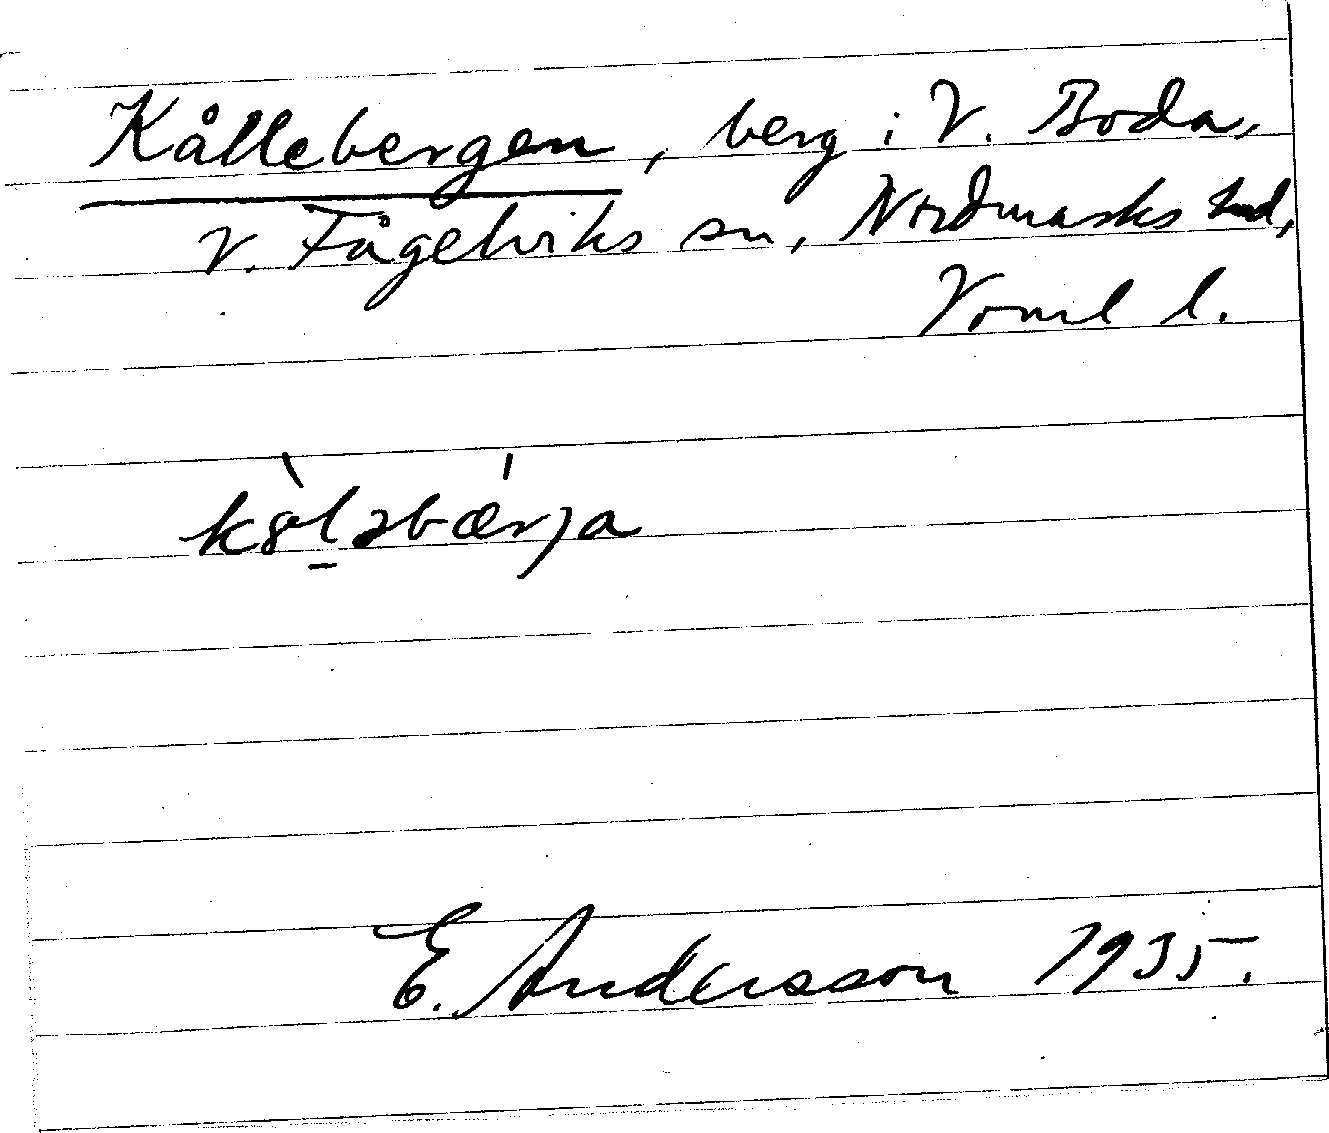 Kållebergen, berg i V. Boda,
V. Fågelviks sn, Nordmarks hd,
Vrml l.
E. Andersson 1935.